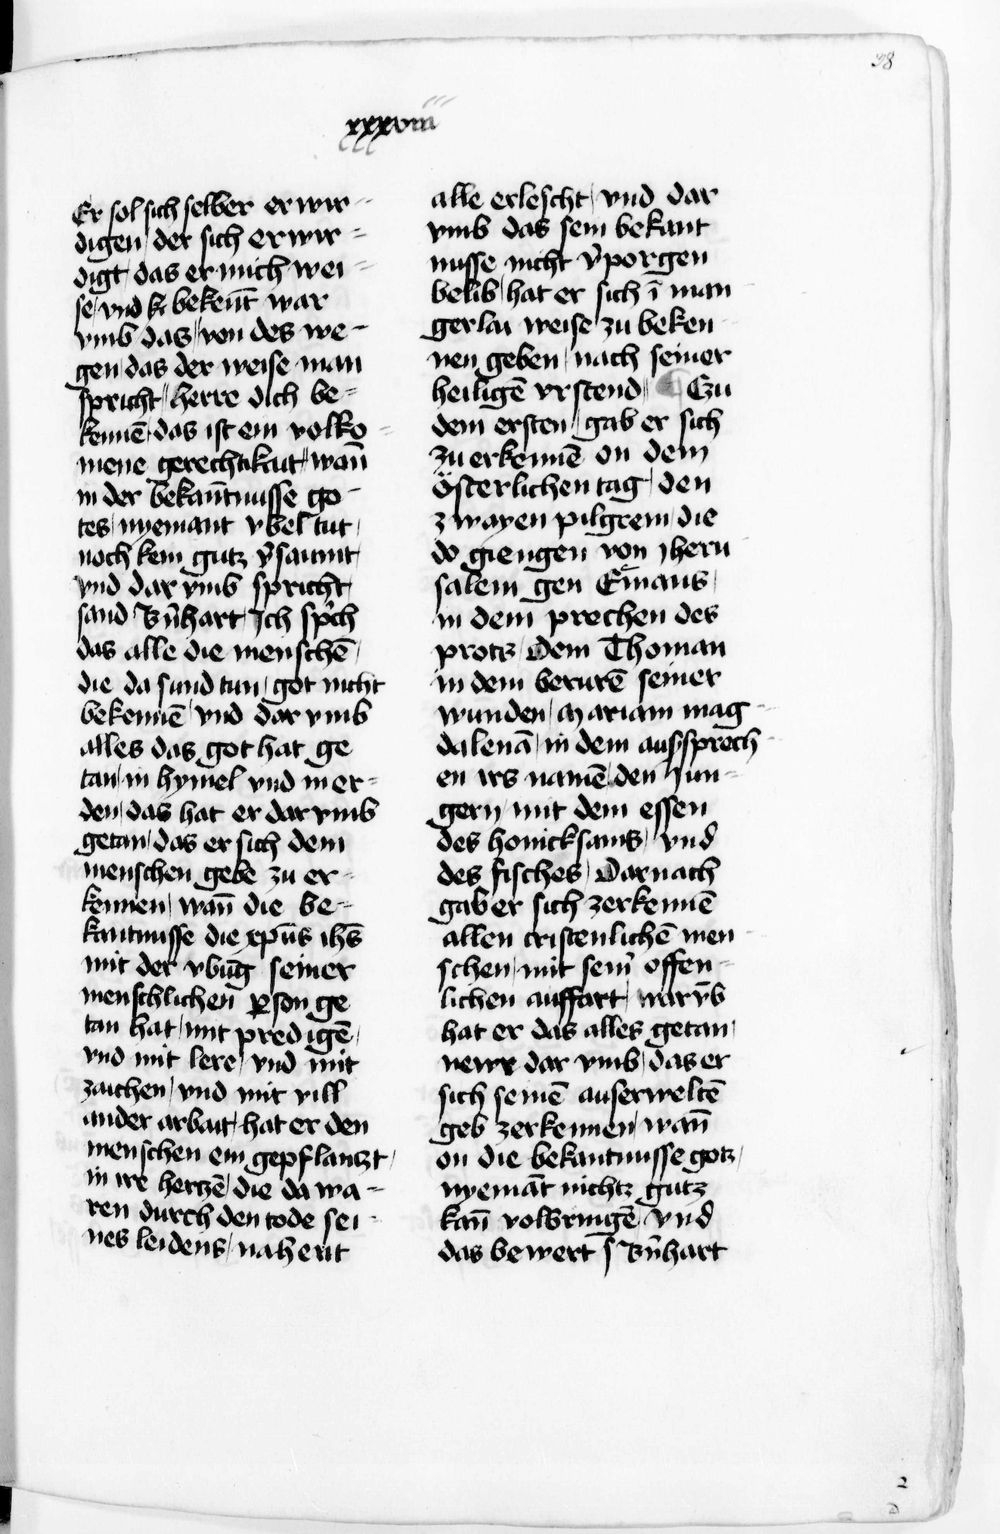 38
xxxviii
Er sol sich selber erwir-
digen / der sich erwir-
digt / das er mich wei-
se / vnd bekent war
vmb das / von des we-
gen / das der weise man
spricht / herre dich be-
kennē / das ist ein volko-
mene gerechtikait / wan̄
in der bekan̄tnusse go-
tes / nyemant vbel tut /
noch kein gutz v̾saumt /
vnd dar vmb spricht /
sand B̾nhart / Ich sp̾ch
das alle die menschē /
die da sund tun / got nicht
bekennē / vnd dar vmb
alles das got hat ge
tan / in hymel vnd in er-
den / das hat er dar vmb
getan / das er sich dem
menschen gebe zu er-
kennen / wan̄ die be-
kantnusse die xp̄us ihs̄
mit der vbūg seiner
menschlichen ꝑson ge
tan hat / mit predigē /
vnd mit lere / vnd mit
zaichen / vnd mit vill
ander arbait / hat er den
menschen ein gepflantzt /
in ire hertzē / die da wa-
ren durch den tode sei-
nes leidens / nahent
alle erlescht / vnd dar
vmb das sein bekant
nusse nicht v̾porgen
belib / hat er sich ī man-
gerlai weise zu beken-
nen geben / nach seiner
heiligē vrstend / Czu
dem ersten / gab er sich
zu erkennē on dem
österlichen tag / den
zwayen pilgrein / die
do giengen von Jheru-
salem gen Emaus /
in dem prechen des
protz / Dem Thoman
in dem berurē seiner
wunden / Mariam mag-
dalenā / in dem aussprech-
en irs namē / den Jun-
gern / mit dem essen
des honicksams / vnd
des fisches / Darnach
gab er sich zerkennē
allen cristenlichē men-
schen / mit sein̾ offen-
lichen auffart / warv̄b
hat er das alles getan /
newr dar vmb / das er
sich seinē auserweltē
geb zerkennen / wan̄
on die bekantnusse gotz /
nyemāt nichtz gutz
kan̄ volbringē / vnd
das bewert s̄ B̾nhart
2